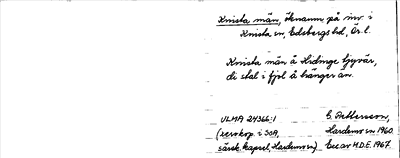 Knista män, öknamn på inv. i
Knista sn, Edsbergs hd, Ör. l.
Knista män å Hidinge tjyvär,
di stal i fjol å hänger än.
ULMA 24366:1
(xerokop. i SOA,
särsk. kapsel, Hardemo sn)
C. Pettersson,
Hardemo sn 1960.
Exc. av M.D.E. 1967.